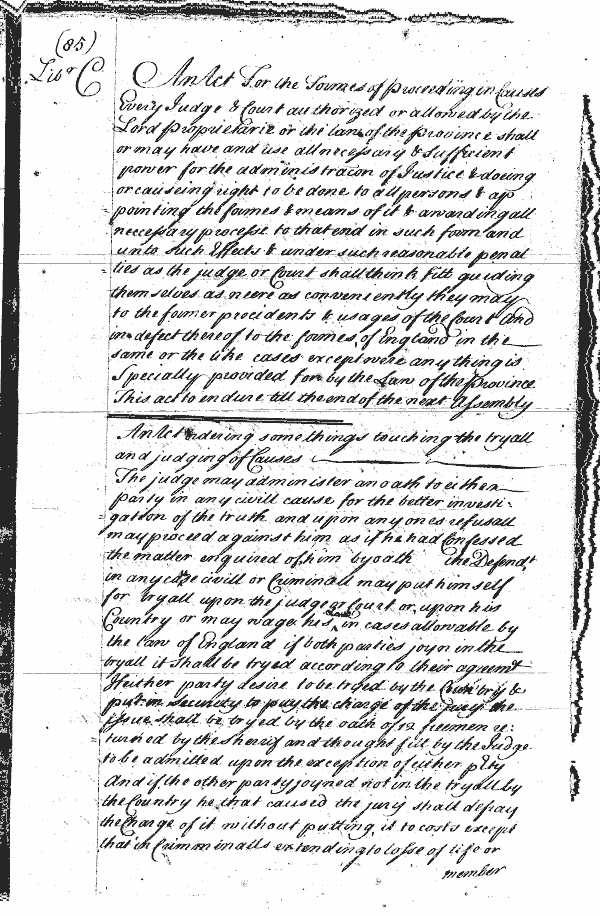 (85)
Libr C
An Act For the Formes of Proceeding in Causes
Every Judge & Court authorized or allowed by the
Lord Proprietarie or the law of the Province shall
or may have and use all necessary & sufficient
power for the administracon of Justice & doeing
or causeing right to be done to all persons & ap
pointing the formes & means of it & awarding all
necessary processe to that end in such form and
unto such Effects & under such reasonable penal
ties as the judge or Court shall think fitt guiding
themselves as neere as conveniently they may
to the former precidents & usages of the Court and
in defect thereof to the formes of England in the
same or the like cases except where any thing is
Specially provided for by the Law of the province
This act to endure till the end of the next Assembly
An Act ordering some things touching the tryall
and judging of Causes
The judge may administer an oath to either
party in any civill cause for the better investi-
gation of the truth and upon any ones refusall
may proceed against him as if he had Confessed
the matter enquired of him by oath the Defendt
in any civill or Criminall may put himself
for tryall upon the judge or Court or upon his
Country or may wage his in cases allowable by
the law of England if both parties joyn in the
tryall it shall be tryed according to their agreemt
If either party desire to be tryed by the Country &
put in security to pay the charge of the jury the
issue shall be tryed by the oath of 12 freemen re:
turned by the sherrif and thought fitt by the Judge
to be admitted upon the exception of either pty
And if the other party joyned not in the tryall by
the Country he that caused the jury shall defray
the Charge of it without putting it to costs except
that in Criminalls extending to losse of life or
member